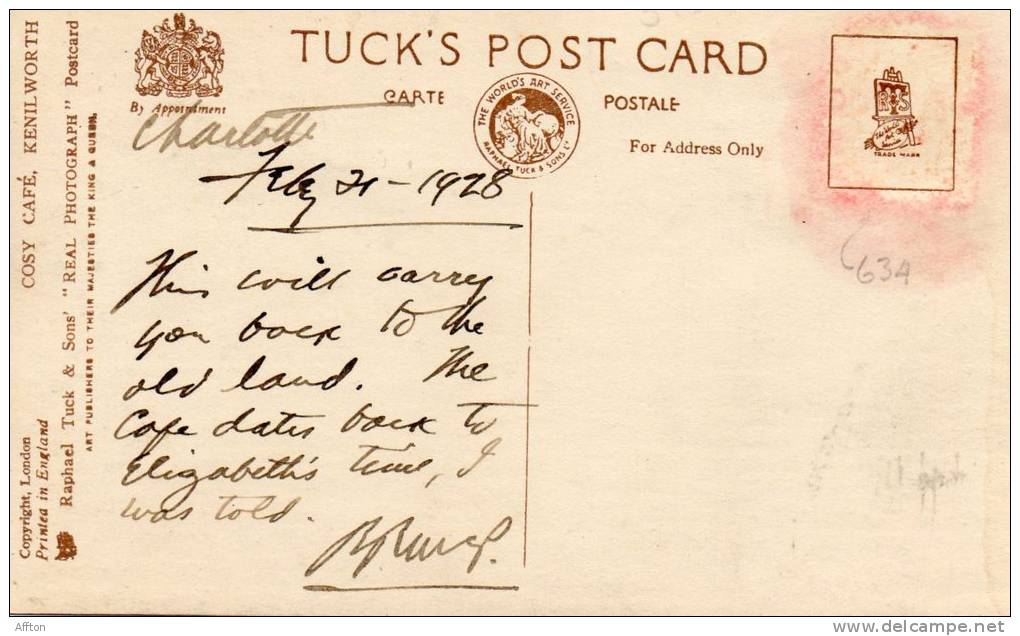 TUCK'S POST CARD
By Appointment
CARTE
POSTALE
THE WORLD'S ART SERVICE
RAPHAEL TUCK & SONS Ld
For Address Only
TRADE MARK
634
Charlotte
Feby 21-1928
This will carry
you back to the
old land. The
Cafe dates back to
Elizabeth's time, I
was told.
COSY CAFÉ, KENILWORTH
Raphael Tuck & Sons' "REAL PHOTOGRAPH" Postcard
ART PUBLISHERS TO THEIR MAJESTIES THE KING & QUEEN.
Copyright, London
Printed in England
Affton
delcampe.net